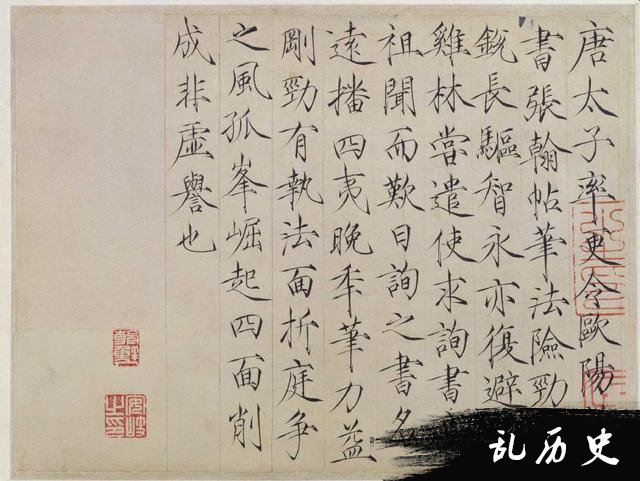 唐太子率更令歐陽
書張翰帖筆法險勁
銳長驅智永亦復避
雞林嘗遣使求詢書
祖聞而歎曰詢之書名
遠播四夷晚年筆力益
剛勁有執法面折庭爭
之風孤峯崛起四面削
成非虛譽也
乱历史